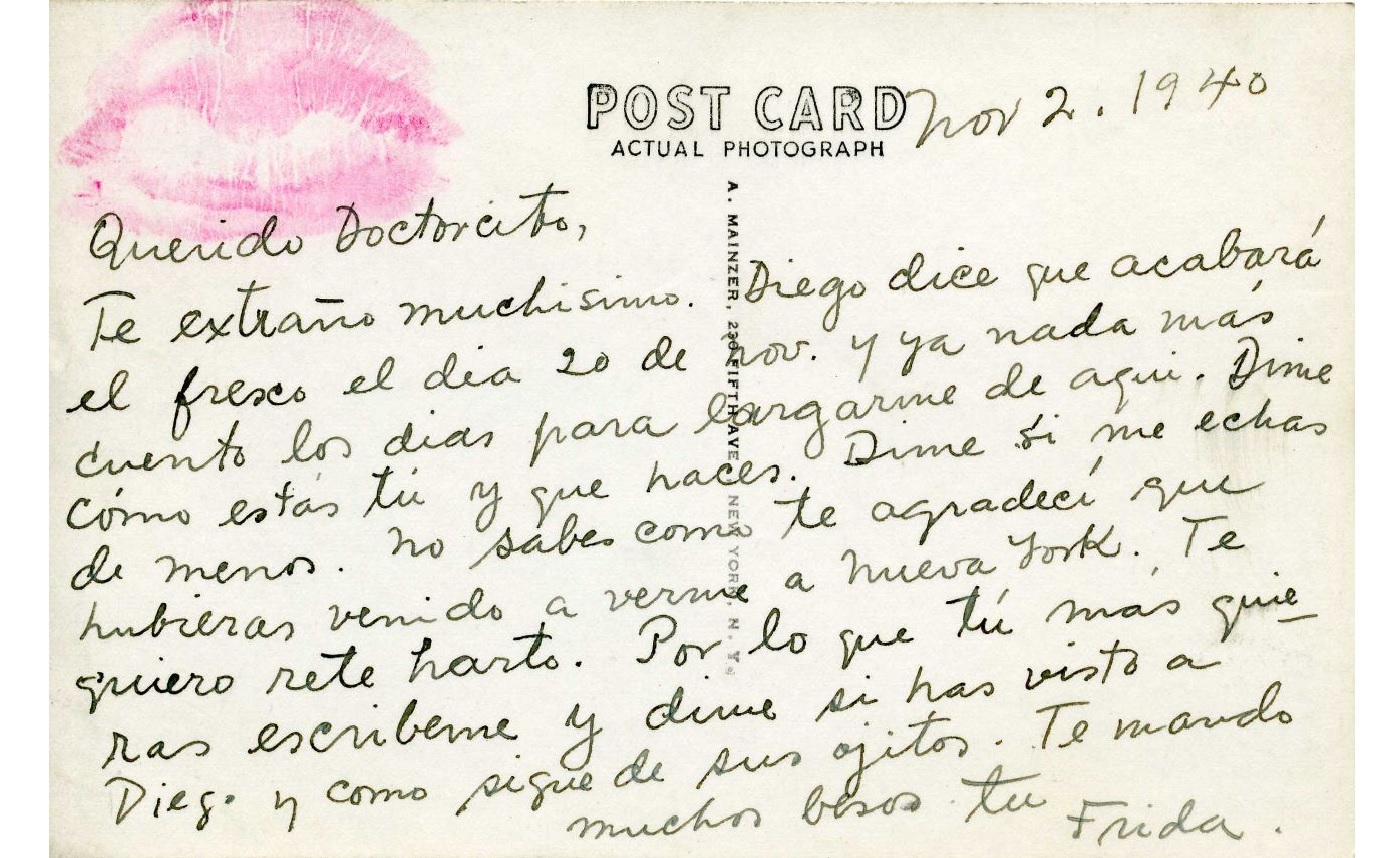 POST CARD
ACTUAL PHOTOGRAPH
Nov 2. 1940
A. MAINZER, 230 FIFTH AVE NEW YORK, N. Y.
Querido Doctorcito,
Te extraño muchisimo. Diego dice que acabará
el fresco el dia 20 de nov. y ya nada más
cuento los dias para largarme de aqui. Dime
cómo estás tú y que haces. Dime si me echas
de menos. No sabes como te agradecí que
hubieras venido a verme a Nueva York. Te
quiero rete harto. Por lo que tú más quie-
ras escribeme y dime si has visto a
Diego y como sigue de sus ojitos. Te mando
muchos besos tu Frida.